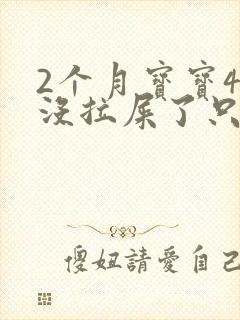 2个月寶寶4
沒拉屎了只
傻妞請愛自己